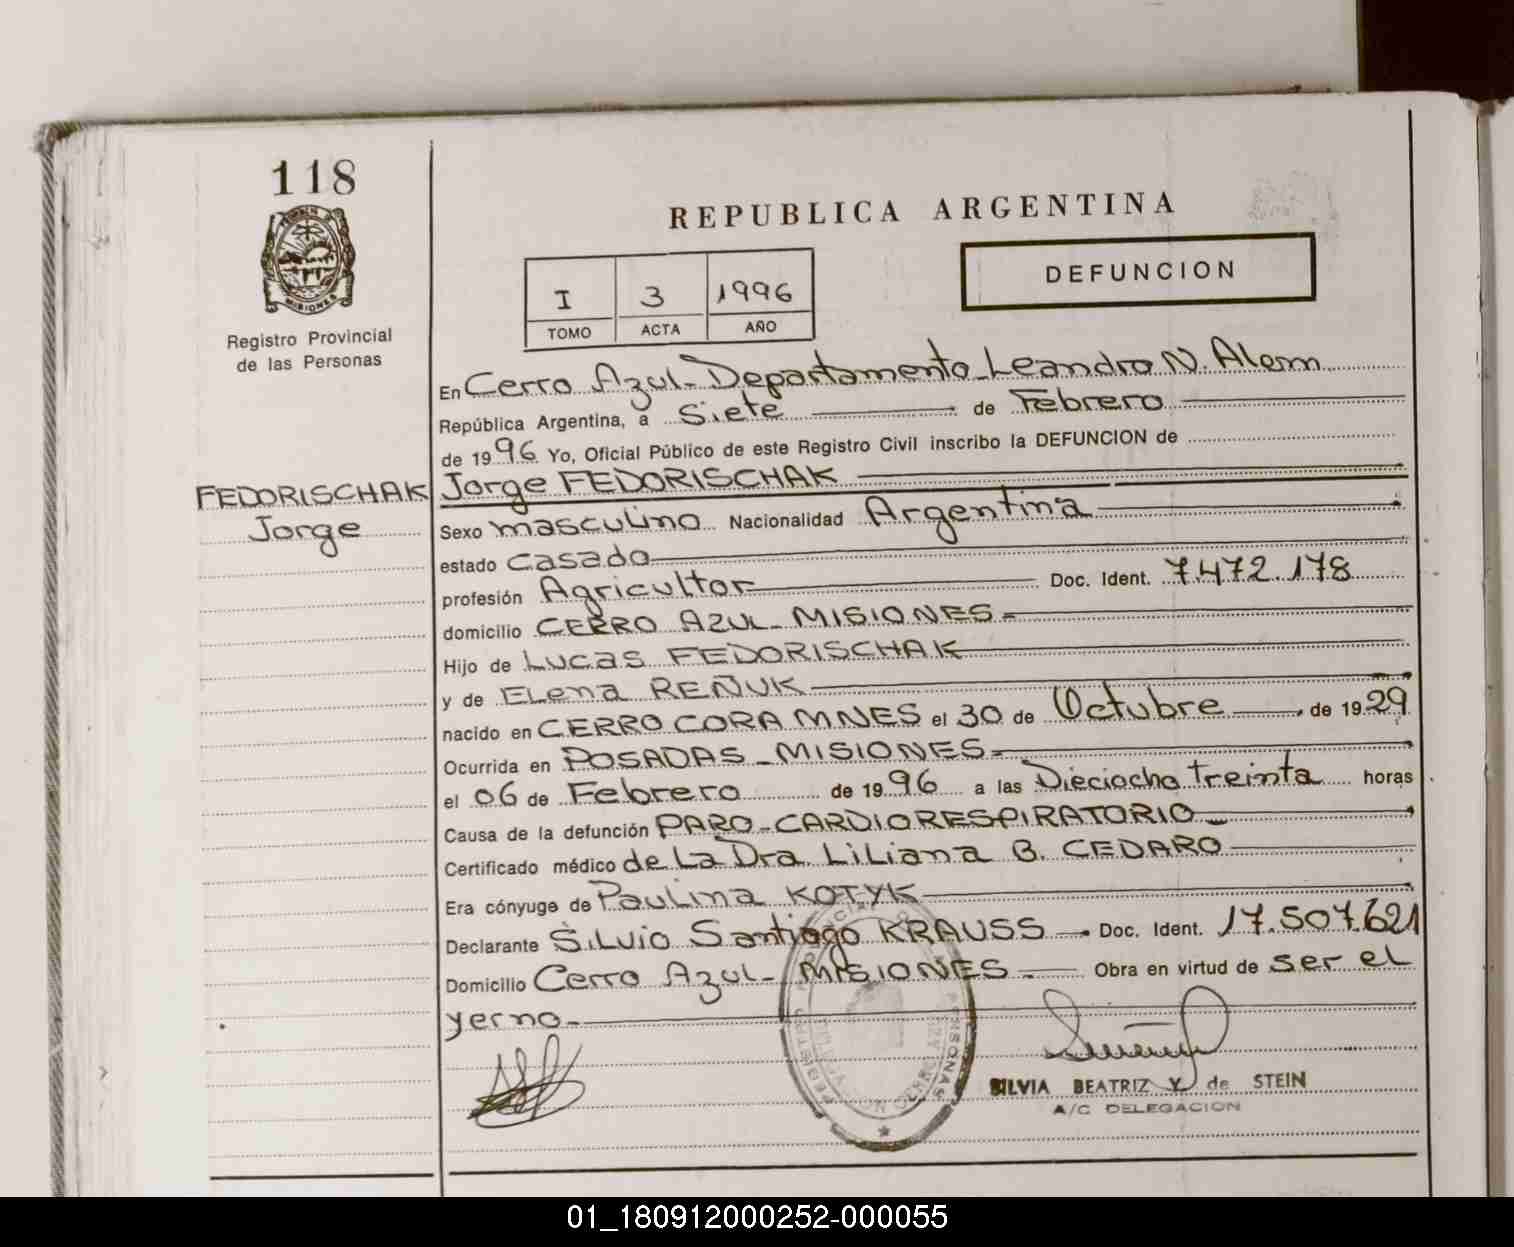 118
MISIONES
Registro Provincial
de las Personas
REPUBLICA ARGENTINA
DEFUNCION
I 3 1996
TOMO ACTA AÑO
En Cerro Azul - Departamento Leandro N. Alem
República Argentina, a Siete de Febrero
de 1996 Yo, Oficial Público de este Registro Civil inscribo la DEFUNCION de
FEDORISCHAK Jorge FEDORISCHAK
Jorge
Sexo masculino Nacionalidad Argentina
estado casado
profesión Agricultor Doc. Ident. 7.472.178
domicilio CERRO AZUL - MISIONES -
Hijo de Lucas FEDORISCHAK
y de Elena REÑUK
nacido en CERRO CORA MNES el 30 de Octubre de 1929
Ocurrida en POSADAS - MISIONES -
el 06 de Febrero de 1996 a las Dieciocho treinta horas
Causa de la defunción PARO - CARDIORESPIRATORIO -
Certificado médico de La Dra. Liliana B. CEDARO
Era cónyuge de Paulina KOTYK
Declarante Silvio Santiago KRAUSS Doc. Ident. 17.507.621
Domicilio Cerro Azul - MISIONES - Obra en virtud de ser el
yerno -
SILVIA BEATRIZ Y de STEIN
A/C DELEGACION
01_180912000252-000055